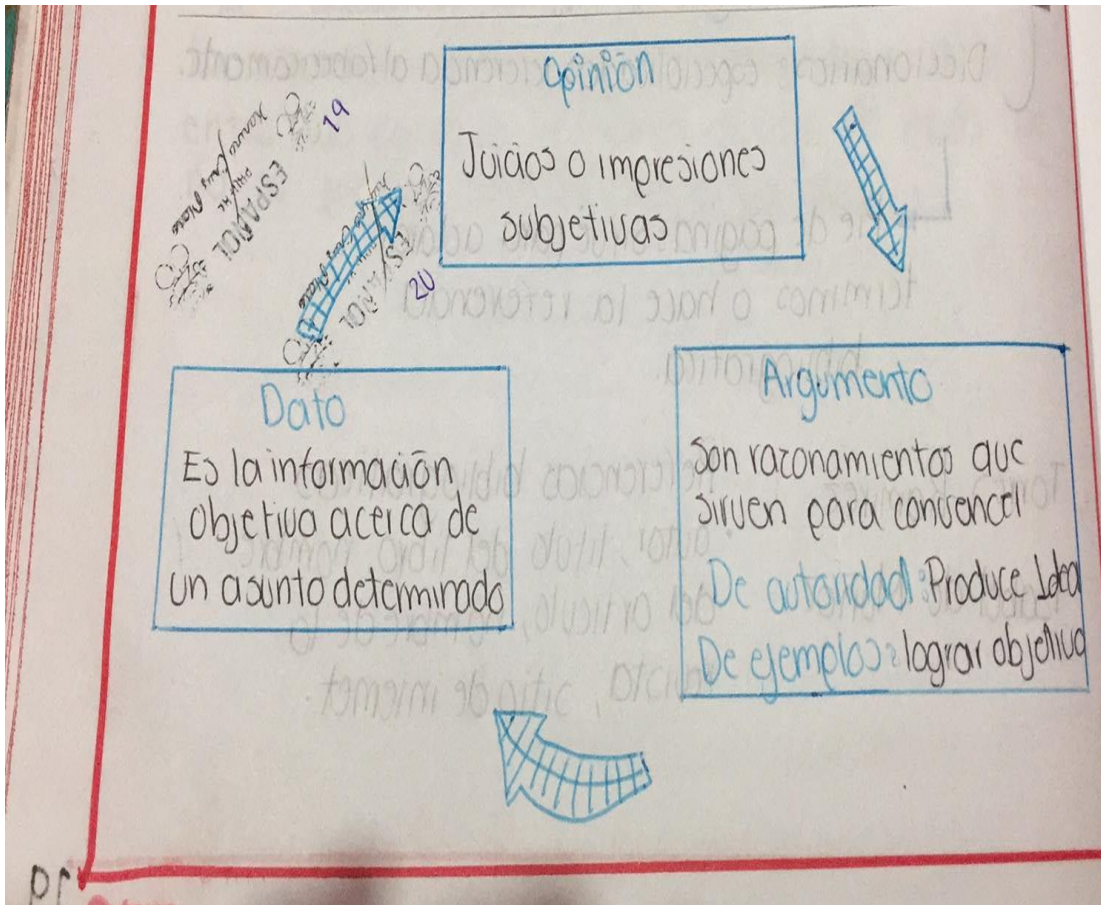 Opinión
Juicios o impresiones
subjetivas
19
ESPAÑOL
20
ESPAÑOL
Dato
Es la información
objetiva acerca de
un asunto determinado
Argumento
Son razonamientos que
sirven para convencer
De autoridad: Produce Idea
De ejemplos: lograr objetivo